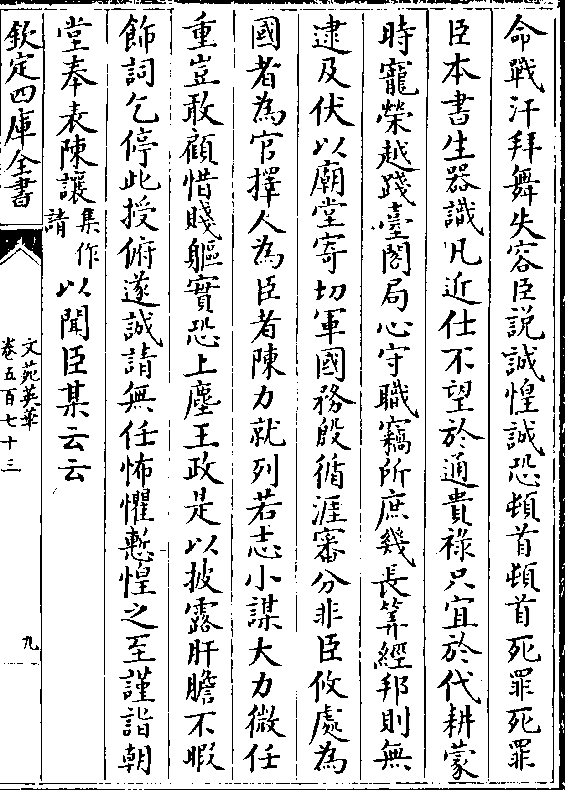 命戰汗拜舞失容臣説誠惶誠恐頓首頓首死罪死罪
臣本書生器識凡近仕不望於通貴祿只宜於代耕蒙
時寵榮越踐臺閣局心守職竊所庶幾長筭經邦則無
逮及伏以廟堂寄切軍國務殷循涯審分非臣攸處為
國者為官擇人為臣者陳力就列若志小謀大力微任
重豈敢顧惜賤軀實恐上塵王政是以披露肝膽不暇
飾詞乞停此授俯遂誠請無任怖懼慙惶之至謹詣朝
堂奉表陳讓集作請以聞臣某云云
欽定四庫全書
文苑英華
卷五百七十三
九